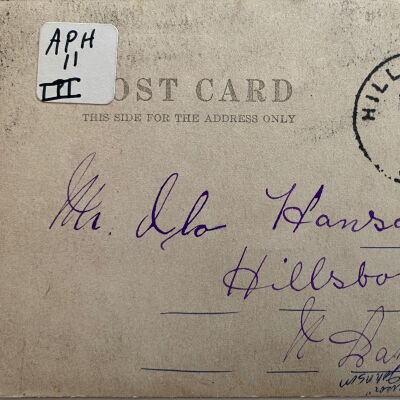 APH
11
III
POST CARD
THIS SIDE FOR THE ADDRESS ONLY
HILL
Mr. Ilo Hanso
Hillsbo
N Da